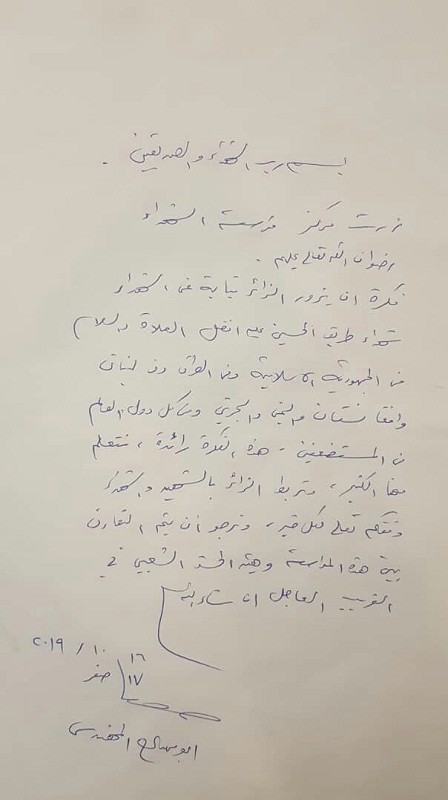 بسم رب الشهداء والصديقين .
زرت مركز مؤسسة الشهداء
رضوان الله تعالى عليهم .
فكرة ان يزور الزائر نيابة عن الشهداء
شهداء طريق الحسين عليه افضل الصلاة والسلام
من الجمهورية الاسلامية ومن العراق ومن لبنان
وافغانستان واليمن والبحرين ومن كل دول العالم
من المستضعفين ، هذه الفكرة رائدة ، نتعلم
منها الكثير ، وتربط الزائر بالشهيد والشهداء
وفقكم تعالى لكل خير ، ونرجو ان يتم التعاون
بين هذه المؤسسة وهيئة الحشد الشعبي في
القريب العاجل ان شاء الله
١٦ / ١٠ / ٢٠١٩
١٧ صفر
ابو مهدي المهندس